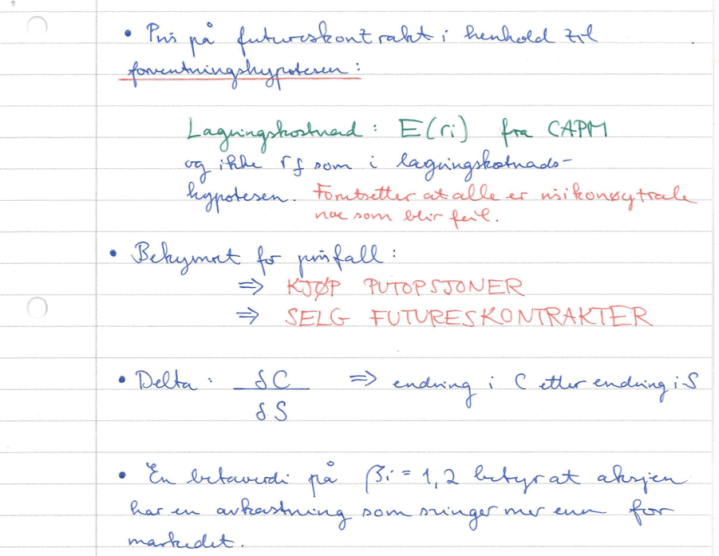 • Pris på futureskontrakt i henhold til
forventningshypotesen :
Lagringskostnad : E(ri) fra CAPM
og ikke rf som i lagringskotnads-
hypotesen. Forutsetter at alle er risikonøytrale
noe som blir feil.
• Bekymret for prisfall :
⇒ KJØP PUTOPSJONER
⇒ SELG FUTURESKONTRAKTER
• Delta : δC ⇒ endring i C etter endring i S
δS
• En betaverdi på βi = 1,2 betyr at aksjen
har en avkastning som svinger mer enn for
markedet.